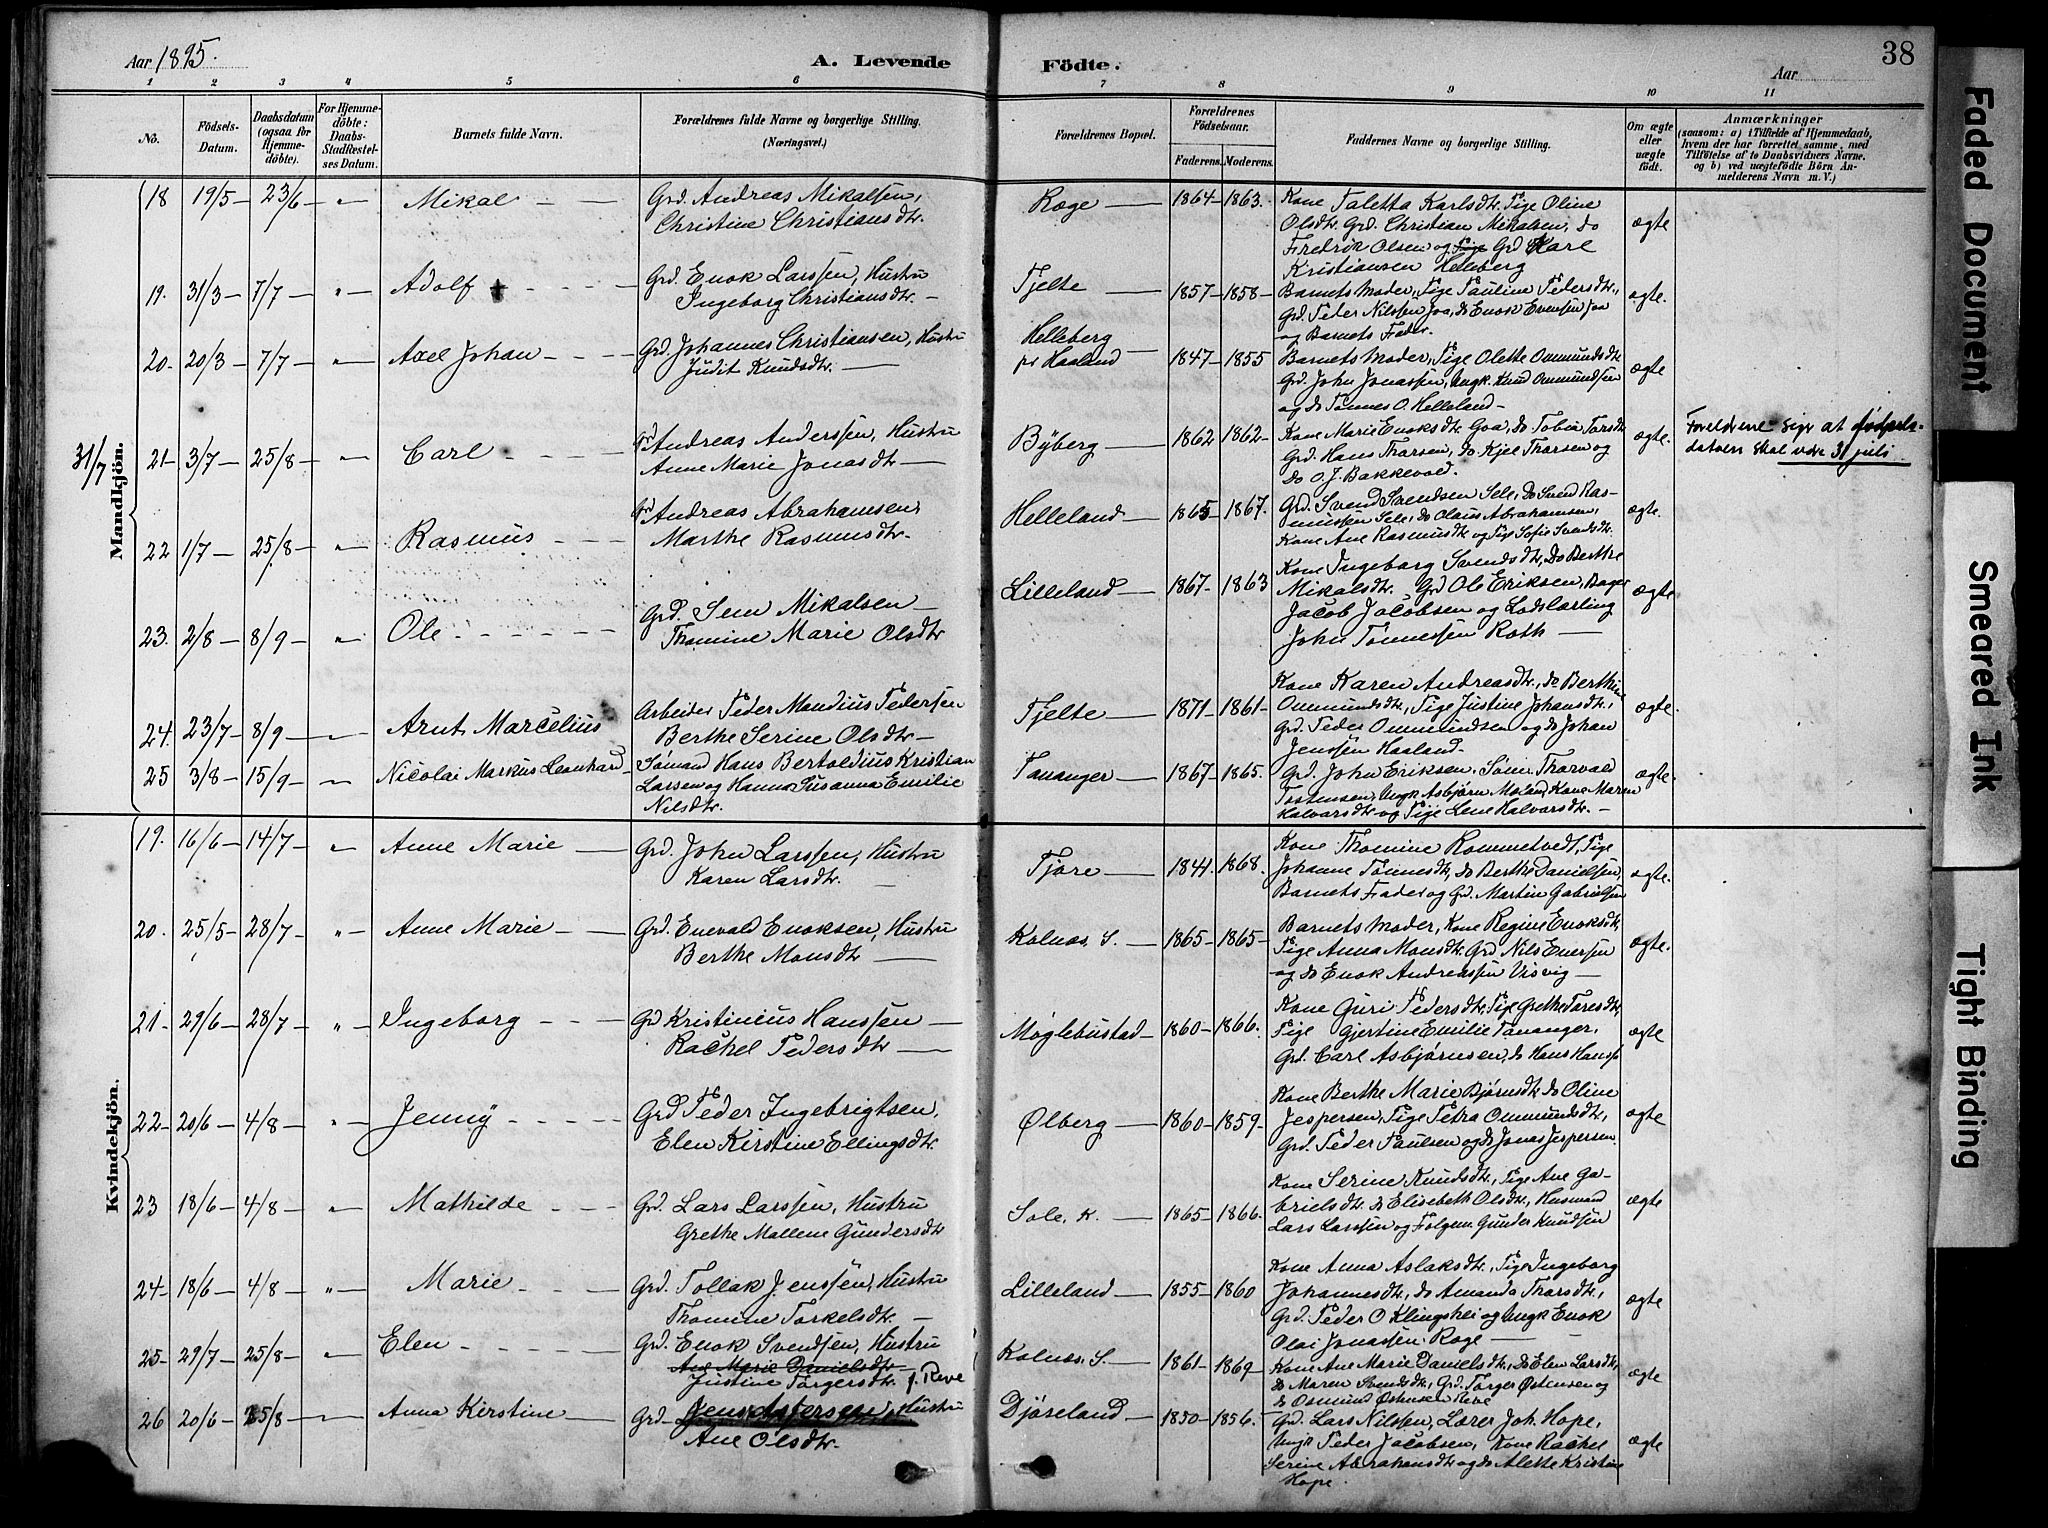 Aar 1895.
A. Levende
Födte.
Aar
38
1 2 3 4 5 6 7 8 9 10 11
No.
Födsels-Datum.
Daabsdatum (ogsaa for Hjemme-döbte).
For Hjemme-döbte: Daabs-Stadfæstel-ses Datum.
Barnets fulde Navn.
Forældrenes fulde Navne og borgerlige Stilling.
(Næringsvei.)
Forældrenes Bopæl.
Forældrenes Födselsaar.
Faderens. Moderens.
Faddernes Navne og borgerlige Stilling.
Om ægte eller uægte födt.
Anmærkninger
(saasom: a) i Tilfælde af Hjemmedaab,
hvem der har forrettet samme, med
Tilföielse af to Daabsvidners Navne.
og b) ved uægtefödte Börn An-
melderens Navn m. V.)
Mandkjön.
18 19/5 23/6 " Mikal
Grd. Andreas Mikalsen,
Christine Christiansdtr.
Ræge 1864 1863.
Kone Taletta Karlsdtr. Pige Oline
Olsdtr. Grd. Christian Mikalsen, do
Fredrik Olsen og Grd Karl
Kristiansen Helleberg
ægte
19. 31/3 7/7 " Adolf
Grd. Enok Larssen, Hustru
Ingeborg Christiansdtr.
Tjelte 1857 1858
Barnets Moder, Pige Paulina Pedersdtr.,
Grd. Peder Nilssen Joa, do Enok Evensen Joa
og Barnets Fader.
ægte.
20. 20/3 7/7 " Axel Johan
Grd. Johannes Christiansen, Hustru
Judit Knudsdtr.
Helleberg
pr Haaland 1847 1855
Barnets Moder, Pige Olette Ommundsdtr
Grd. John Jonassen, Ungk. Knud Ommundsen
og do Tønnes O. Helleland
ægte
31/7
21 3/7 25/8 " Carl
Grd Andreas Anderssen, Hustru
Anne Marie Jonasdtr
Byberg 1862 1862
Kone Marie Enoksdtr Goa, do Tobia Tarsdtr
Grd. Hans Thorsen, do Kjel Thorsen og
do O. J. Bakkevold.
ægte.
Foreldrene sige at fødsels-
datoen skal være 31 juli
22 1/7 25/8 " Rasmus
Grd Andreas Abrahamsen,
Marthe Rasmusdtr.
Helleland 1865 1867.
Grd. Svend Svendsen Sele, do Svend Ras-
mussen Sele, do Olaus Abrahamsen,
Kone Ane Rasmusdtr og Pige Sofie Svendsdtr.
ægte.
23. 2/8 8/9 " Ole
Grd. Sem Mikalsen
Thomine Marie Olsdtr
Lilleland 1867 1863
Kone Ingeborg Svendsdtr, do Berthe
Mikalsdtr. Grd Ole Eriksen, Bager
Jacob Jacobsen og Lodslærling
John Tønnessen Roth
ægte
24. 23/7 8/9 Arnt Marcelius
Arbeider Peder Mandius Pedersen
Berthe Serine Olsdtr
Tjelte 1871 1861
Kone Karen Andreasdtr., do Berthine
Ommundsdtr, Pige Justine Johansdtr.,
Grd. Peder Ommundsen og do Johan
Jenssen Haaland.
ægte.
25 3/8 15/9 Nicolai Markus Leonhard
Sømand Hans Bertoldius Kristian
Larsen og Hanna Susanna Emilie
Nilsdtr.
Tananger 1867 1865.
Grd. John Eriksen. Søm. Thorvald
Tostensen, Ungk Asbjørn Meland, Kone Maren
Halvarsdtr og Pige Lene Halvarsdtr.
ægte.
Kvindekjön.
19. 16/6 14/7 " Anne Marie
Grd. John Larssen, Hustru
Karen Larsdtr.
Tjøre 1844 1868.
Kone Thomine Rommetvedt, Pige
Johanne Tønnesdtr, do Berthe Danielsen,
Barnets Fader og Grd. Martin Gabrielsen
ægte.
20. 25/5 28/7 " Anne Marie
Grd. Enevald Enoksen, Hustru
Berthe Monsdtr
Kolnæs, S. 1865 1865
Barnets Moder, Kone Regine Enoksdtr
Pige Anna Monsdtr. Grd Nils Enersen
og do Enok Andreassen Visvig
ægte.
21 29/6 28/7 " Ingeborg
Grd Kristinius Hanssen
Rachel Pedersdtr
Møglebustad 1860 1866.
Kone Guri Pedersdtr, Pige Grethe Taresdtr,
Pige Gjertine Emilie Tananger,
Grd. Carl Asbjørnsen, do Hans Hanss.
ægte
22 20/6 4/8 " Jenny
Grd Peder Ingebrigtsen,
Elen Kirstine Ellingsdtr.
Ølberg 1860 1859
Kone Berthe Marie Bjørnsdtr do Oline
Jespersen, Pige Petra Ommundsdtr,
Grd. Peder Paulsen og do Jonas Jespersen.
ægte
23 18/6 4/8 " Mathilde
Grd. Lars Larssen, Hustru
Grethe Mallene Gundersdtr
Sole, K. 1865 1866.
Kone Serine Knudsdtr, Pige Ane Ga-
brielsdtr. do Elisabeth Olsdtr, Husmand
Lars Larssen og Følgem. Gunder Knudsen
ægte
24 18/6 4/8 " Marie
Grd. Tollak Jenssen, Hustru
Thomine Torkelsdtr.
Lilleland 1855 1860
Kone Anna Aslaksdtr, Pige Ingeborg
Johannesdtr, do Amanda Tharsdtr,
Grd. Peder O Klingshei og Ungk Enok
Olai Jonassen Ræge
ægte
25 29/7 25/8 " Elen
Grd. Enok Svendsen, Hustru
Ane Marie Danielsdtr
Justine Torgersdtr. f. Reve
Kolnæs, S. 1861 1869
Kone Ane Marie Danielsdtr, do Elen Larsdtr,
do Maren Svendsdtr, Grd. Torger Østensen og
do Osmund Østensen Reve
ægte
26 20/6 25/8 Anna Kirstine
Grd. Hustru
Ane Olsdtr.
Djøseland 1850 1856.
Grd. Lars Nilssen, Lærer Joh. Hope,
Ungk Peder Jacobsen, Kone Rachel
Serine Abrahamsdtr og do Alette Kristine
Hope.
ægte
Faded Document
Smeared Ink
Tight Binding